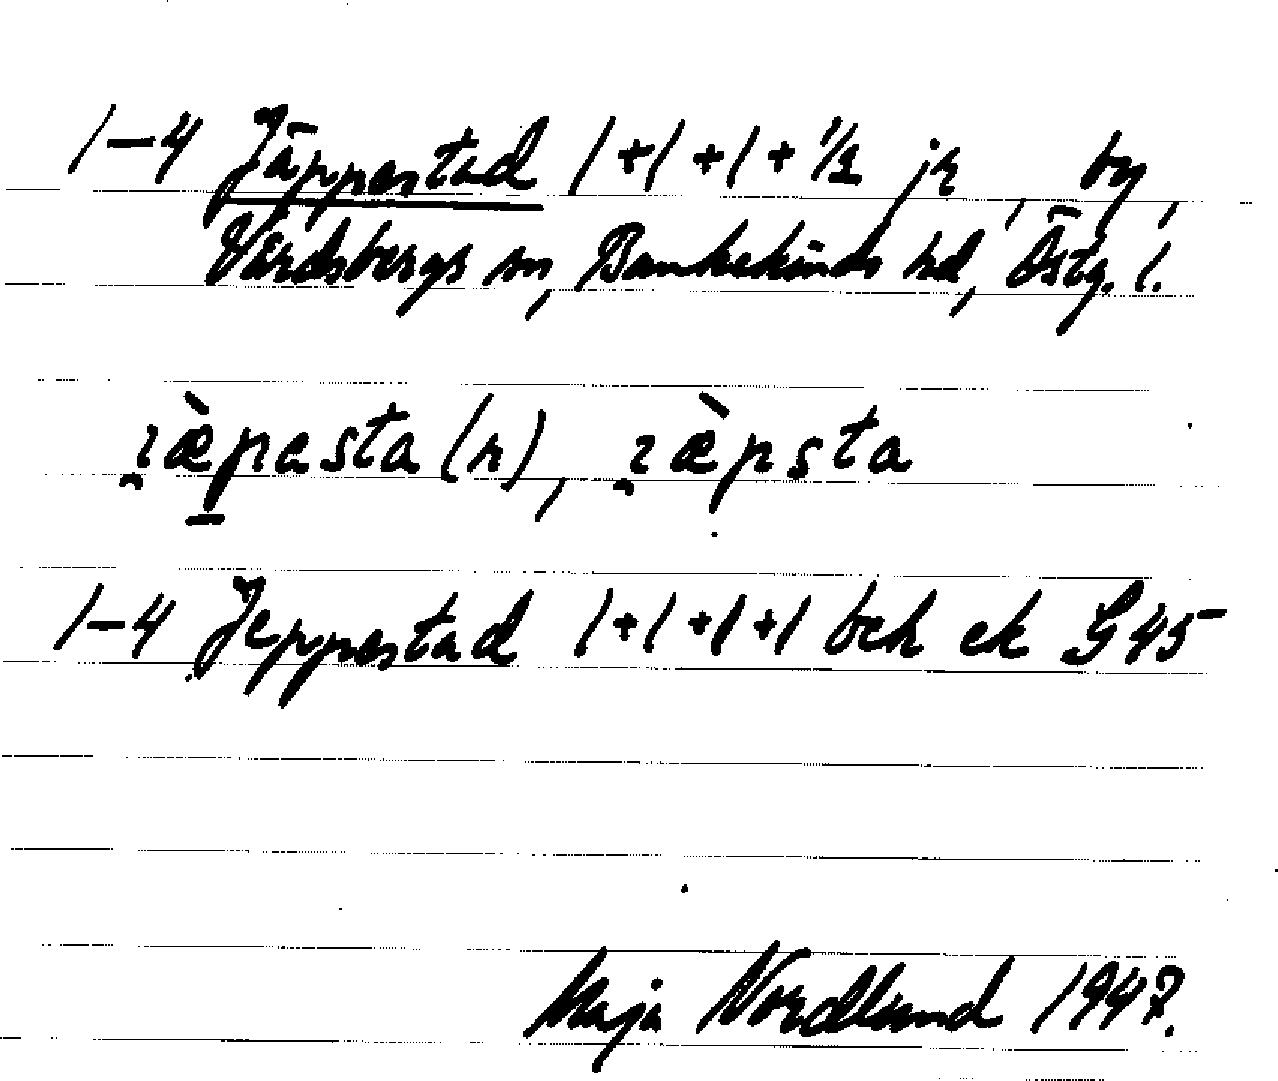 1-4 Jäppestad 1+1+1+1/2 jr, by,
Vårdsbergs sn, Bankekinds hd, Östg. l.
ɿæ̀pesta(n), ɿæ̀psta
1-4 Jeppestad 1+1+1+1 bek ek G45
Maja Nordlund 1947.